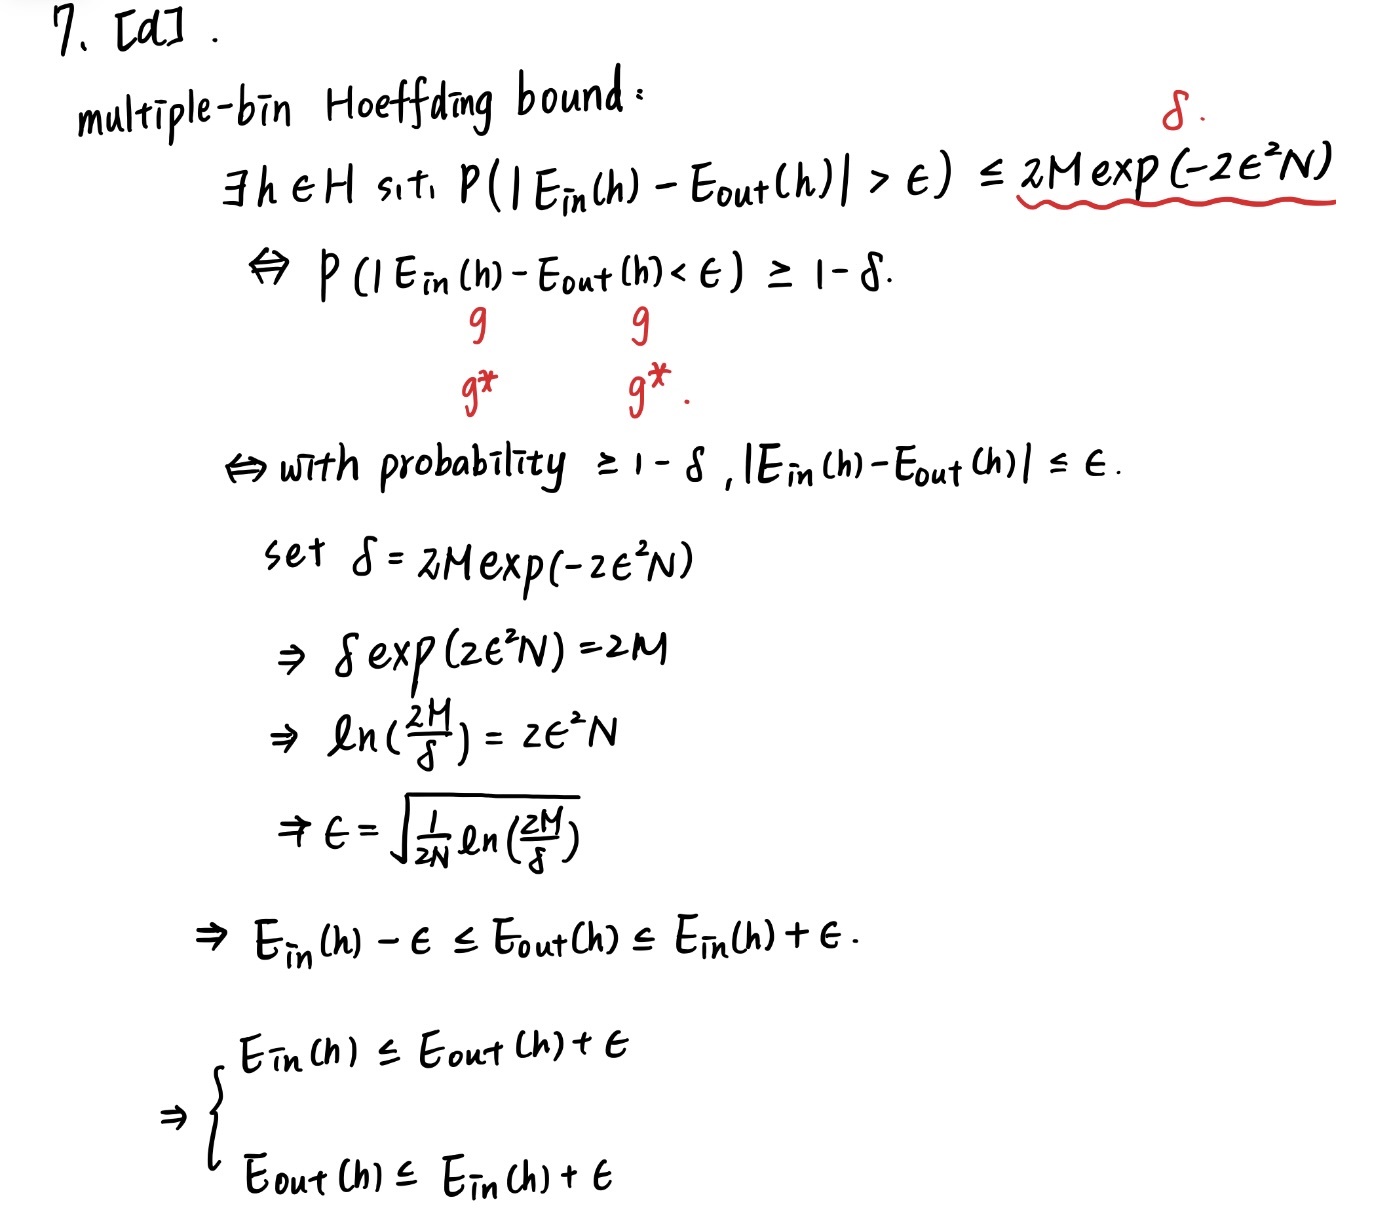 7. [d].
multiple-bin Hoeffding bound:
δ.
∃h∈H s.t. P(|Ein(h) - Eout(h)| > ϵ) ≤ 2M exp(-2ϵ²N)
⇔ P(|Ein(h) - Eout(h) < ϵ) ≥ 1-δ.
g g
g* g*.
⇔ with probability ≥ 1-δ, |Ein(h) - Eout(h)| ≤ ϵ.
set δ = 2M exp(-2ϵ²N)
⇒ δ exp(2ϵ²N) = 2M
⇒ ln(2M/δ) = 2ϵ²N
⇒ ϵ = √(1/2N ln(2M/δ))
⇒ Ein(h) - ϵ ≤ Eout(h) ≤ Ein(h) + ϵ.
⇒ { Ein(h) ≤ Eout(h) + ϵ
Eout(h) ≤ Ein(h) + ϵ